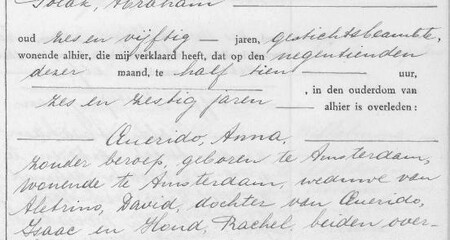 Polak, Abraham
oud zes en vijftig jaren, gestichtsbeambte,
wonende alhier, die mij verklaard heeft, dat op den negentienden
dezer maand, te half tien uur,
zes en zestig jaren, in den ouderdom van
alhier is overleden:
Querido, Anna,
zonder beroep, geboren te Amsterdam,
wonende te Amsterdam, weduwe van
Aletrino, David, dochter van Querido,
Isaac en Hond, Rachel, beiden over-